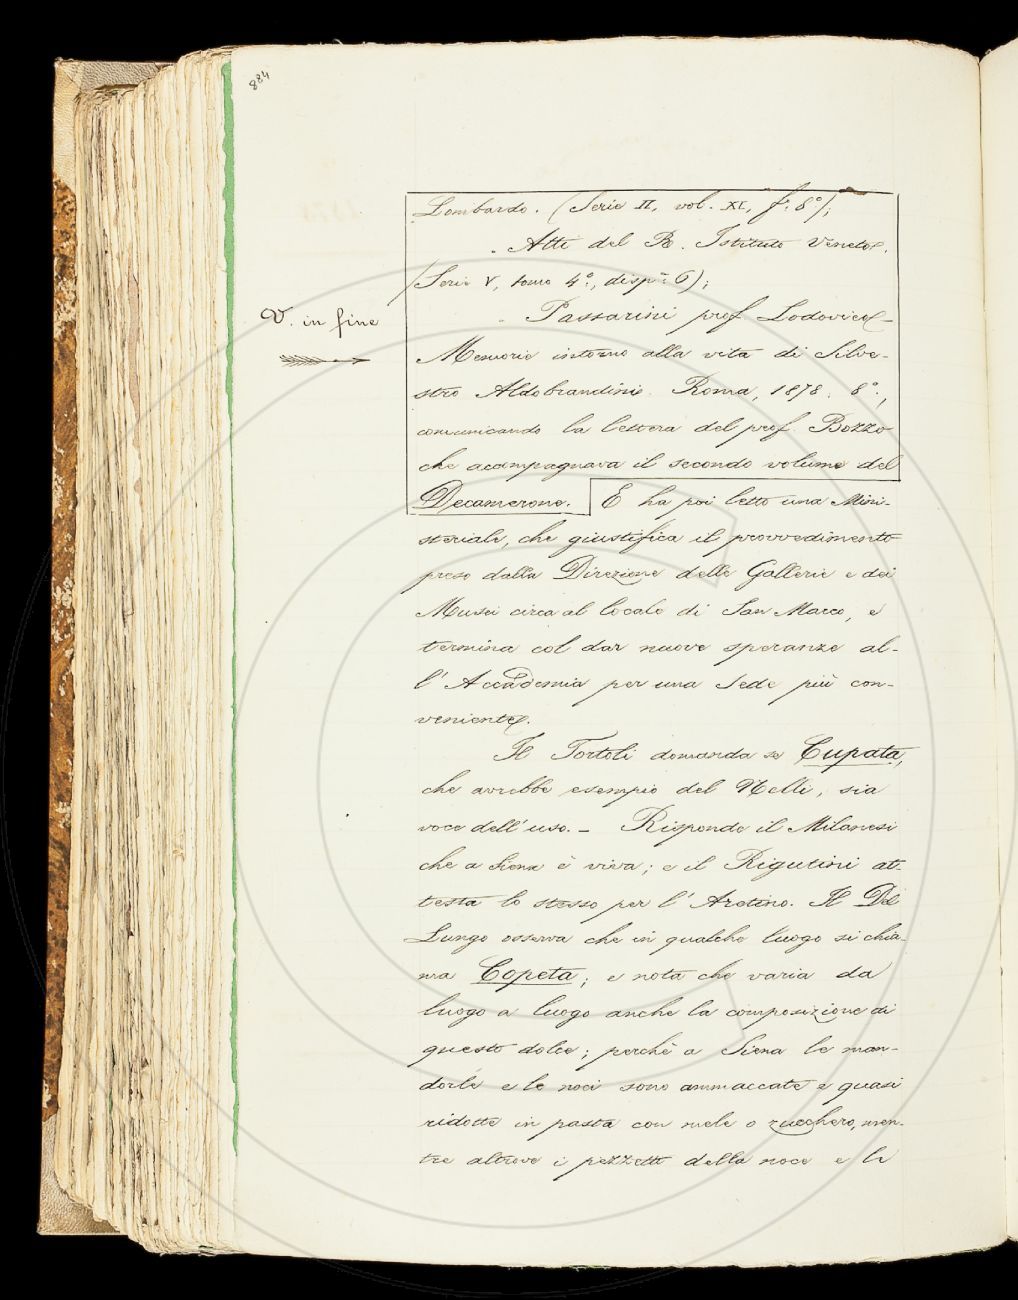 884
Lombardo. (Serie II, vol. XI, f.° 8°);
Atti del R. Istituto Veneto.
(Serie V, tomo 4°, disp.ª 6);
V. in fine
Passarini prof. Lodovico –
Memorie intorno alla vita di Silve-
stro Aldobrandini. Roma, 1878. 8°.,
comunicando la lettera del prof. Bozzo
che acompagnava il secondo volume del
Decamerone. E ha poi letto una Mini-
steriale, che giustifica il provvedimento
preso dalla Direzione delle Gallerie e dei
Musei circa al locale di San Marco, e
termina col dar nuove speranze al-
l'Accademia per una Sede più con-
veniente.
Il Tortoli domanda se Cupata,
che avrebbe esempio del Nelli, sia
voce dell'uso. – Risponde il Milanesi
che a Siena è viva; e il Rigutini at-
testa lo stesso per l'Aretino. Il Del
Lungo osserva che in qualche luogo si chia-
ma Copeta; e nota che varia da
luogo a luogo anche la composizione di
questo dolce; perchè a Siena le man-
dorle e le noci sono ammaccate e quasi
ridotte in pasta con mele o zucchero, men-
tre altrove i pezzetti della noce e le